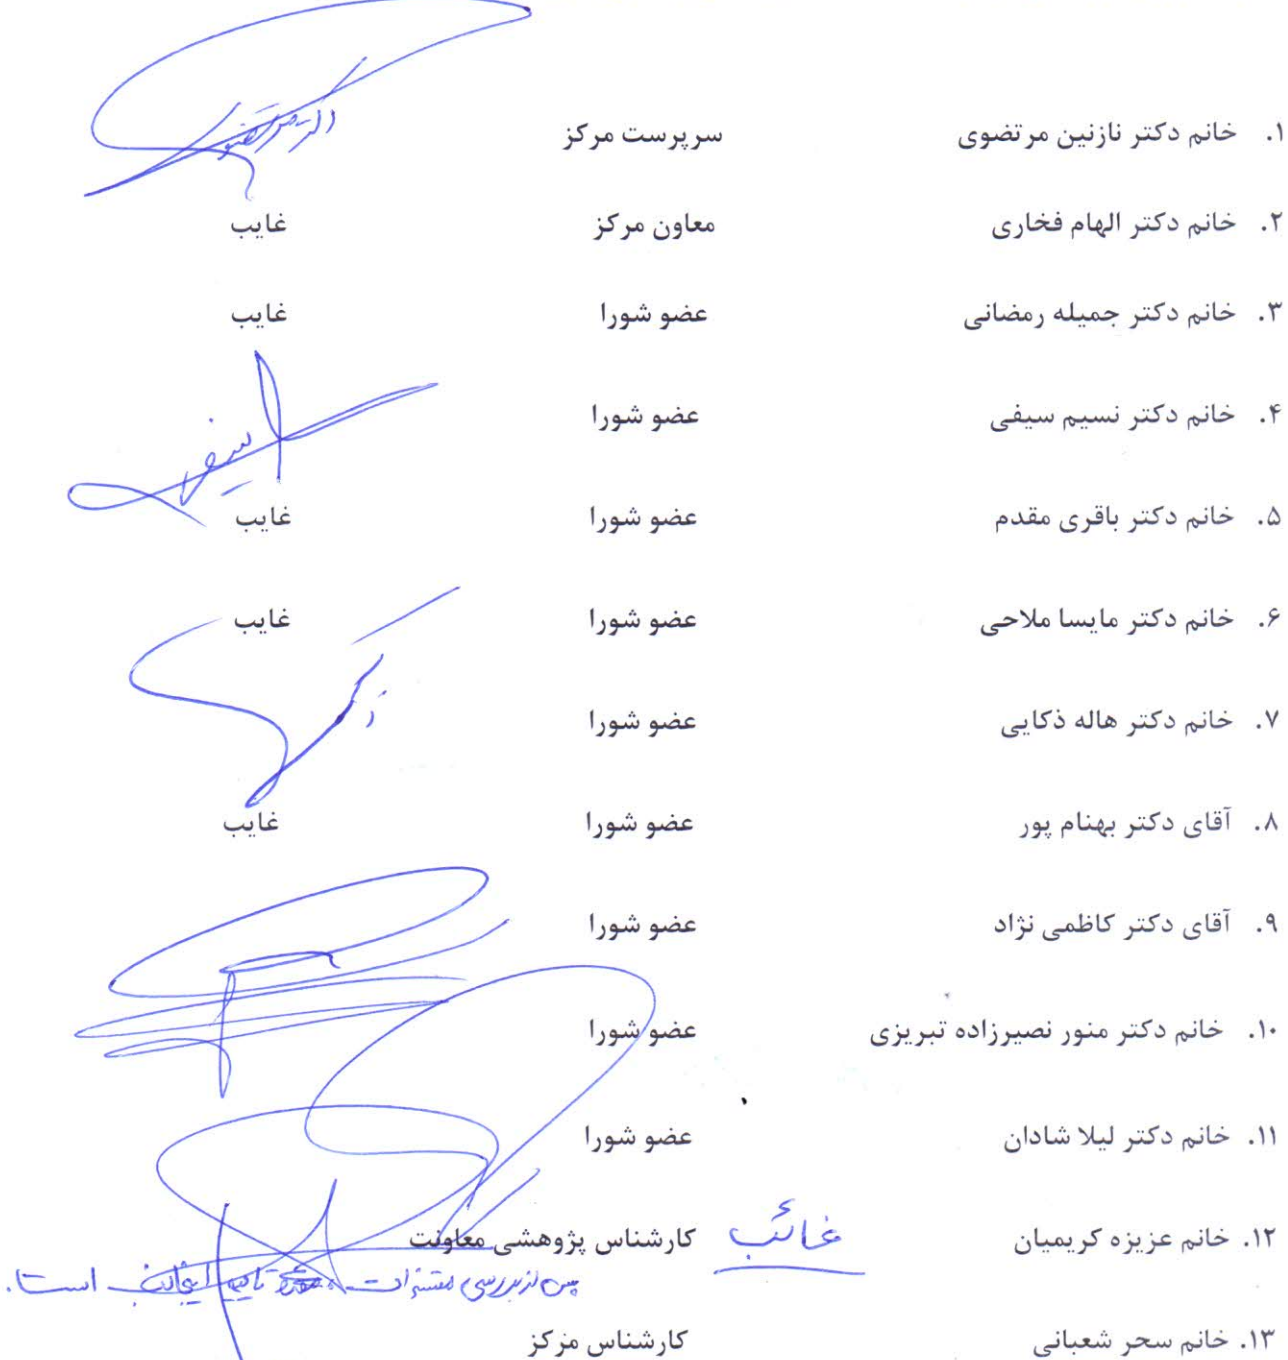 ۱. خانم دکتر نازنین مرتضوی سرپرست مرکز دکتر مرتضوی
۲. خانم دکتر الهام فخاری معاون مرکز غایب
۳. خانم دکتر جمیله رمضانی عضو شورا غایب
۴. خانم دکتر نسیم سیفی عضو شورا سیفی
۵. خانم دکتر باقری مقدم عضو شورا غایب
۶. خانم دکتر مایسا ملاحی عضو شورا غایب
۷. خانم دکتر هاله ذکایی عضو شورا
۸. آقای دکتر بهنام پور عضو شورا غایب
۹. آقای دکتر کاظمی نژاد عضو شورا
۱۰. خانم دکتر منور نصیرزاده تبریزی عضو شورا
۱۱. خانم دکتر لیلا شادان عضو شورا
۱۲. خانم عزیزه کریمیان کارشناس پژوهشی معاونت غائب
پس از بررسی تایید اینجانب است.
۱۳. خانم سحر شعبانی کارشناس مرکز